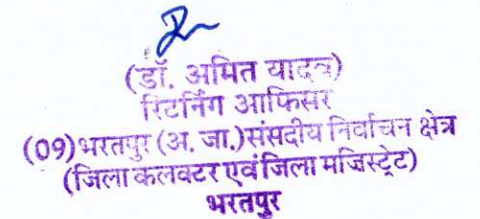 (डॉ. अमित यादव)
रिटर्निंग आफिसर
(09)भरतपुर (अ. जा.)संसदीय निर्वाचन क्षेत्र
(जिला कलक्टर एवं जिला मजिस्ट्रेट)
भरतपुर